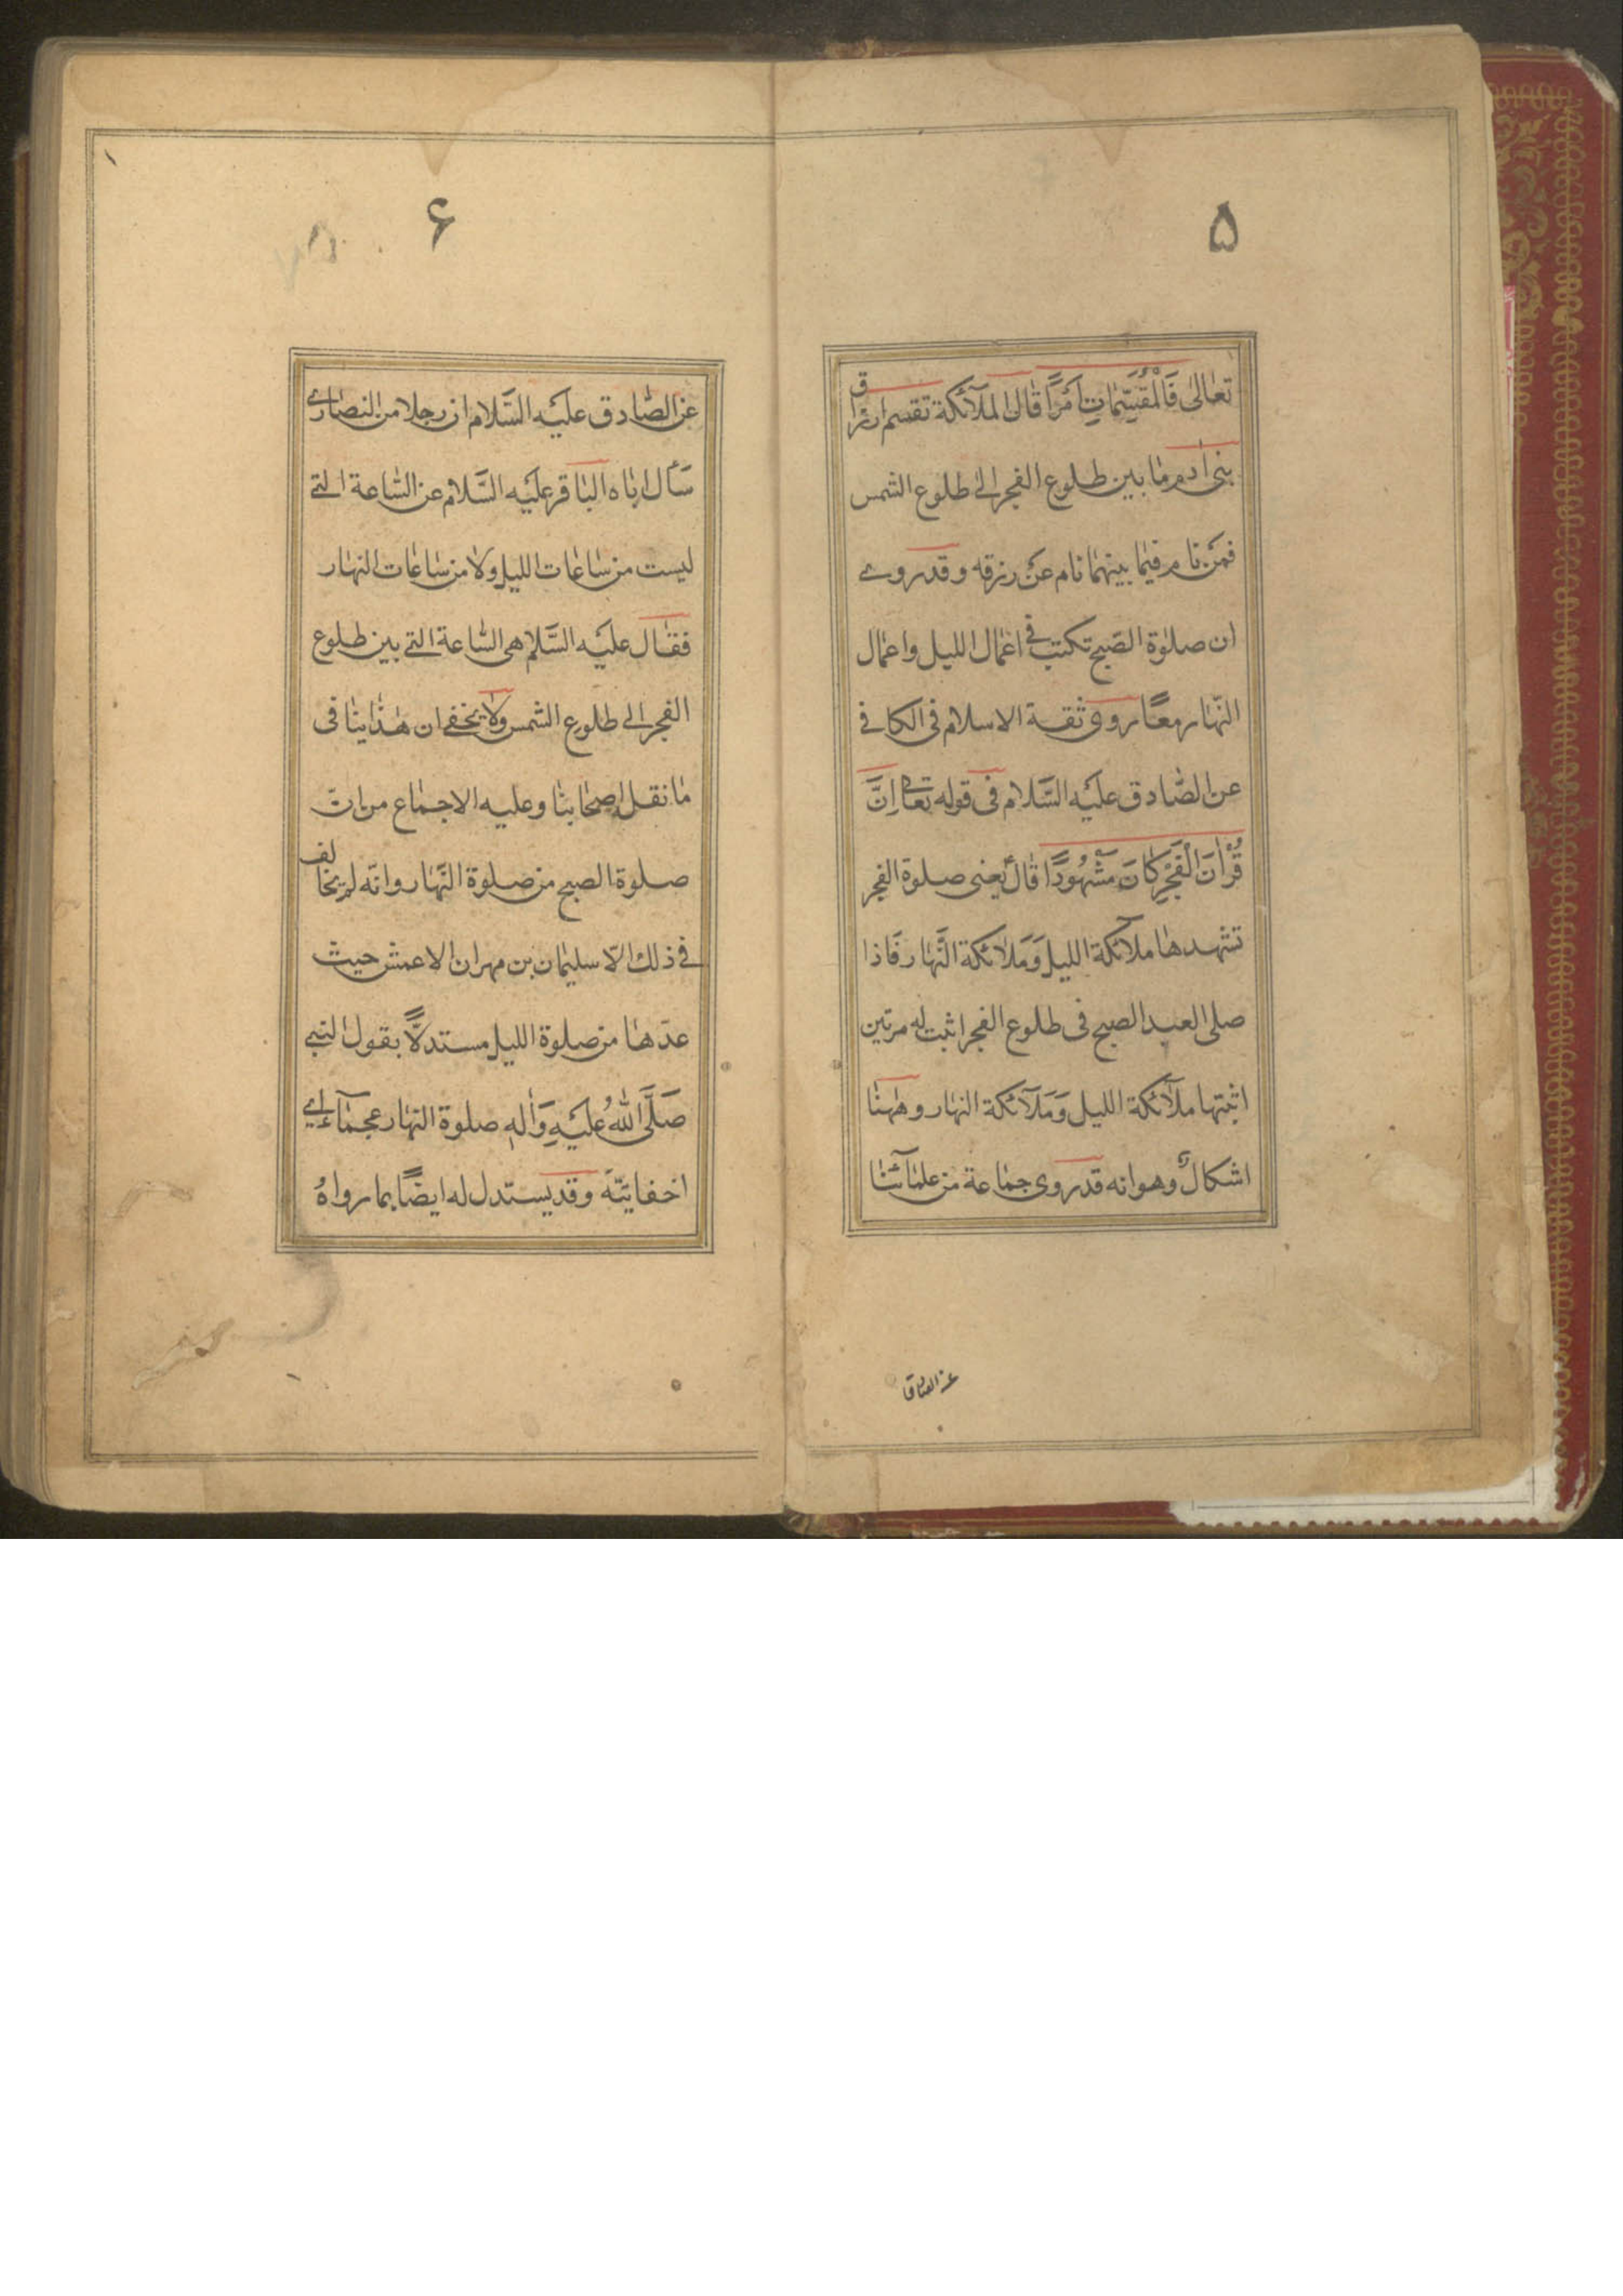 ۵
تعالی فَالْمُقَسِّمَاتِ اَمْرًا قال الملآئکة تقسم ارزاق
بنی ادم ما بین طلوع الفجر الی طلوع الشمس
فمن نام فیما بینهما نام عن رزقه و قد روی
ان صلوة الصبح تکتب فی اعمال اللیل و اعمال
النهار معًا روی ثقة الاسلام فی الکافی
عن الصّادق علیه السَّلام فی قوله تعالی اِنَّ
قُرْاٰنَ الْفَجْرِ کَانَ مَشْهُودًا قال یعنی صلوة الفجر
تشهدها ملآئکة اللیل وَمَلآئکة النَّهار فَاذا
صلی العبد الصبح فی طلوع الفجر اثبت له مرتین
اثبتها ملآئکة اللیل وَمَلآئکة النهار و هٰهنا
اشکالٌ و هو انه قد روی جماعة من علمآئنا
عن الصادق
۶
عن الصّادق علیه السَّلام ان رجلا من النصاری
سَأل اباه الباقر علیه السَّلام عن السّاعة التی
لیست من ساعات اللیل و لا من ساعات النهار
فقال علیه السَّلام هی السّاعة التی بین طلوع
الفجر الی طلوع الشمس و لا یخفی ان هٰذا ینافی
ما نقله اصحابنا و علیه الاجماع من انّ
صلوة الصبح من صلوة النَّهار و انّه لم یخالف
فی ذلک الّا سلیمان بن مهران الاعمش حیث
عدّها من صلوة اللیل مستدلًّا بقول النبی
صَلَّی اللّٰهُ عَلَیْهِ وَاٰلهِ صلوة النهار عجمآء ای
اخفاتیّة و قد یستدل له ایضًا بما رواهُ